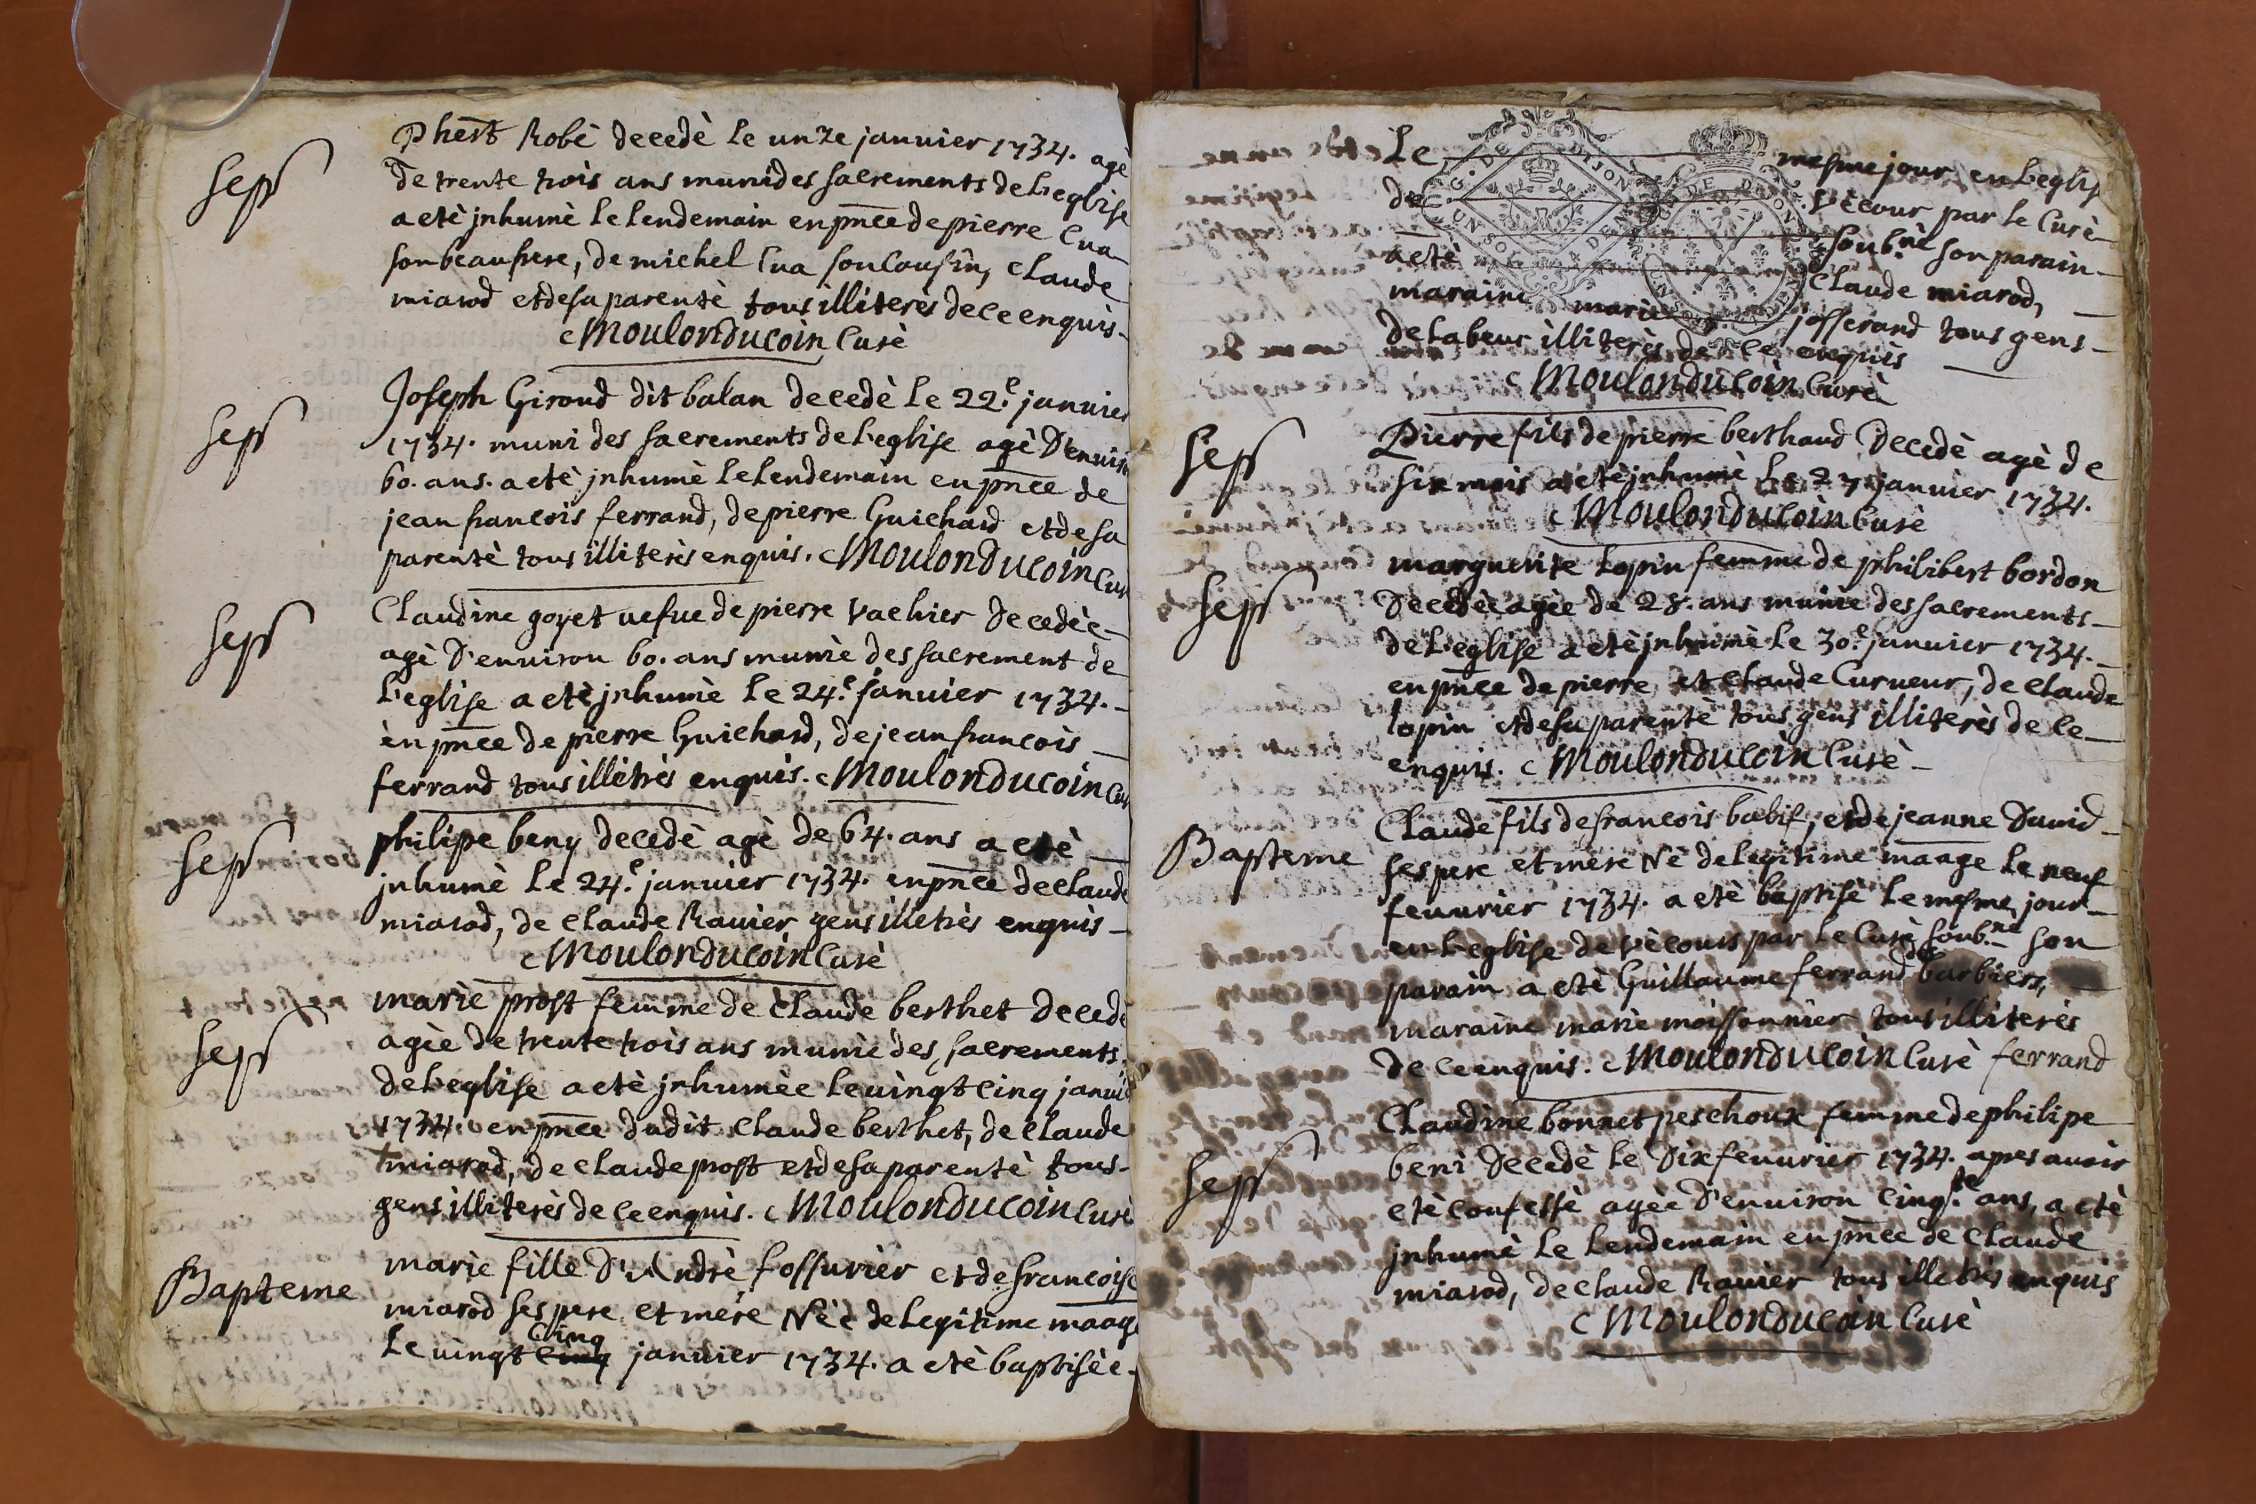 Sep^r
phert Robè decedè le unze januier 1734. agè
de trente trois ans muni des sacrements de l'eglise
a etè jnhumè le lendemain en pnce de pierre Cua
son beaufrere, de michel Cua son Cousin, Claude
miarod et de sa parentè tous illiterès de ce enquis.
Moulonducoin Curè
Sep^r
Joseph Giroud dit balan decedè le 22.e januier
1734. muni des sacrements de l'eglise agè D'enuiron
60. ans. a etè jnhumè le lendemain en pnce de
jean francois ferrand, de pierre Guichard et de sa
parentè tous illiterès enquis. Moulonducoin Cur
Sep^r
Claudine goyet uefue de pierre Vachier decedèe
agè D'enuiron 60. ans munie des sacrement de
l'eglise a etè jnhumè le 24.e januier 1734.
en pnce de pierre Guichard, de jean francois
ferrand tous illitrès enquis. Moulonducoin Cur
Sep^r
philipe beny decedè agè de 64. ans a etè
jnhumè le 24.e januier 1734. en pnce de Claude
miarod, de Claude Rauier gens illetrès enquis
Moulonducoin Curè
Sep^r
marie prost femme de Claude berthet decedè
agèe de trente trois ans munie des sacrements
de l'eglise a etè jnhumèe le uingt Cinq januier
1734. en pnce dudit Claude berthet, de Claude
miarod, de Claude prost et de sa parentè tous
gens illiterès de ce enquis. Moulonducoin Curè
Bapteme
marie fille D'Andrè fossurier et de francoise
miarod ses pere et mere Nèe de legitime maage
Cinq
le uingt Cinq januier 1734. a etè baptisèe
Le mesme jour en l'eglise
de Vècour par le Curè
soub.ne son parain
a etè Claude miarod,
maraine marie josserand tous gens
de labeur illiterès de ce enquis
Moulonducoin Curè
Sep^r
Pierre fils de pierre berthaud decedè agè de
six mois a etè jnhumè le 27 januier 1734.
Moulonducoin Curè
Sep^r
marguerite Lopin femme de philibert bordon
decedèe agèe de 28. ans munie des sacrements
de l'eglise a etè jnhumè le 30.e januier 1734.
en pnce de pierre et Claude Curueur, de Claude
lopin et de sa parente tous gens illiterès de ce
enquis. Moulonducoin Curè
Bapteme
Claude fils de francois bœbif, et de jeanne Dauid
ses pere et mere Nè de legitime maage le neuf
feuurier 1734. a etè baptisè le mesme jour
en l'eglise de Vècours par le Curè soub.ne son
parain a etè Guillaume ferrand de barbiers,
maraine marie moissonnier tous illiterès
de ce enquis. Moulonducoin Curè ferrand
Sep^r
Claudine bonnet peschoux femme de philipe
beni decedè le Dix feuurier 1734. apres auoir
etè confessè agèe D'enuiron Cinq.te ans, a etè
jnhumè le lendemain en pnce de Claude
miarod, de Claude Rauier tous illetrès enquis
Moulonducoin Curè